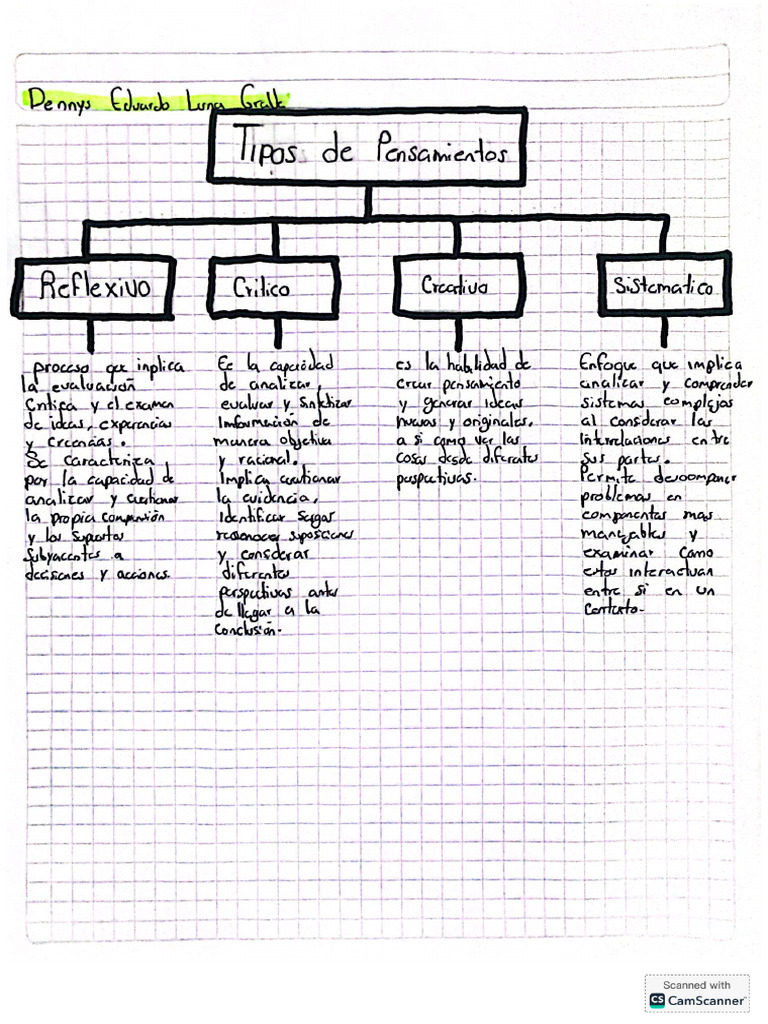 Dennys Eduardo Luna
Tipos de Pensamientos
Reflexivo
Critico
Creativo
Sistematico
proceso que inplica
la evaluación
Critica y el examen
de ideas, experiencias
y creencias.
Se caracteriza
por la capacidad de
analizar y cuestionar
la propia comprensión
y los supuestos
Subyacentes a
decisiones y acciones.
Es la capacidad
de analizar,
evaluar y Sintetizar
Información de
manera objetiva
y racional.
Implica cuestionar
la evidencia,
Identificar Sesgos
reconocer suposiciones
y considerar
diferentes
perspectivas antes
de llegar a la
Conclusión.
es la habilidad de
crear pensamiento
y generar ideas
nuevas y originales,
a si como ver las
cosas desde diferentes
perspectivas.
Enfoque que implica
analizar y comprender
sistemas complejos
al considerar las
Interrelaciones entre
sus partes.
Permite descomponer
problemas en
componentes mas
manejables y
examinar como
estos interactuan
entre si en un
Contexto.
Scanned with
CS CamScanner